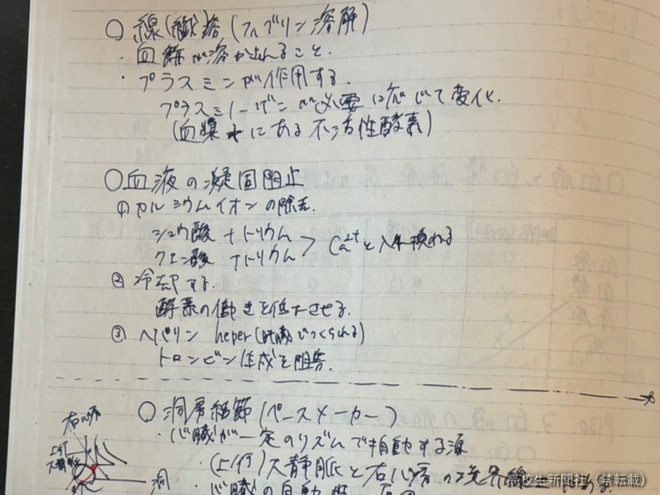 ○ 線(繊)溶 (フィブリン溶解)
・血餅が溶かされること.
・プラスミンが作用する.
プラスミノーゲンが必要に応じて変化.
(血漿中にある不活性酵素)
○血液の凝固阻止
① カルシウムイオンの除去.
シュウ酸ナトリウム
クエン酸ナトリウム > Ca2+と入れ換わる
② 冷却する.
酵素の働きを低下させる.
③ ヘパリン heper (肝臓でつくられる)
トロンビン生成を阻害.
○ 洞房結節 (ペースメーカー)
・心臓が一定のリズムで拍動する源
・(上行)大静脈と右心房の境界線
右心房
上行
大静脈
洞
・心臓の自動性
高校生新聞社(禁転載)